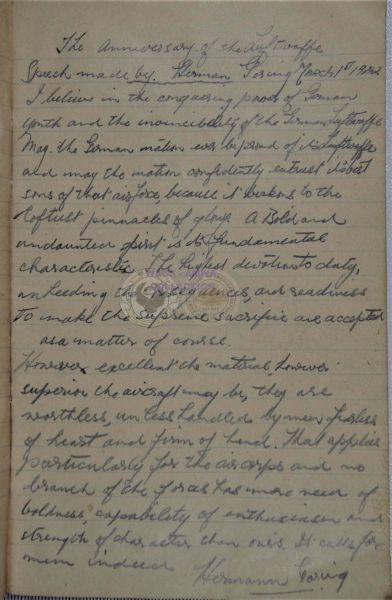 The Anniversary of the Luftwaffe
Speech made by Herman Goring March 1st 1942
I believe in the conquering power of German
youth and the invincibility of the German Luftwaffe
May the German nation ever be proud of its Luftwaffe
and may the nation confidently entrust its best
sons of that air force, because it beckons to the
loftiest pinnacles of glory. A Bold and
undaunted spirit is its fundamental
characteristic The highest devotion to duty,
unheeding the consequences, and readiness
to make the supreme sacrifice are accepted
as a matter of course.
However excellent the material however
superior the aircraft may be, they are
worthless, unless handled by men fearless
of heart and firm of hand. That applies
particularly for the air corps and no
branch of the forces has more need of
boldness, capability of enthusiasm and
strength of character than ours. It calls for
men indeed Hermann Goring